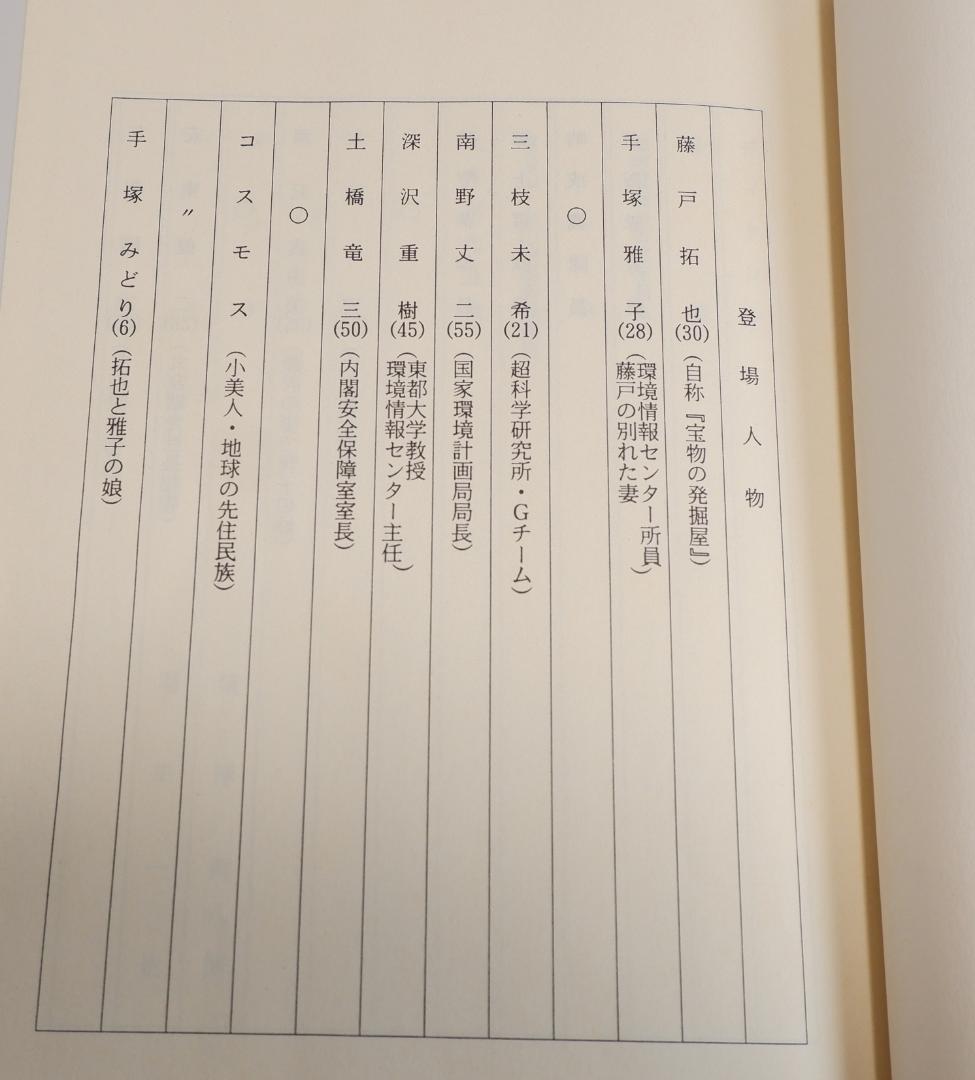 登場人物
藤戸拓也(30)(自称『宝物の発掘屋』)
手塚雅子(28)(環境情報センター所員
藤戸の別れた妻)
○
三枝未希(21)(超科学研究所・Gチーム)
南野丈二(55)(国家環境計画局局長)
深沢重樹(45)(東都大学教授
環境情報センター主任)
土橋竜三(50)(内閣安全保障室室長)
○
コスモス(小美人・地球の先住民族)
〃
手塚みどり(6)(拓也と雅子の娘)